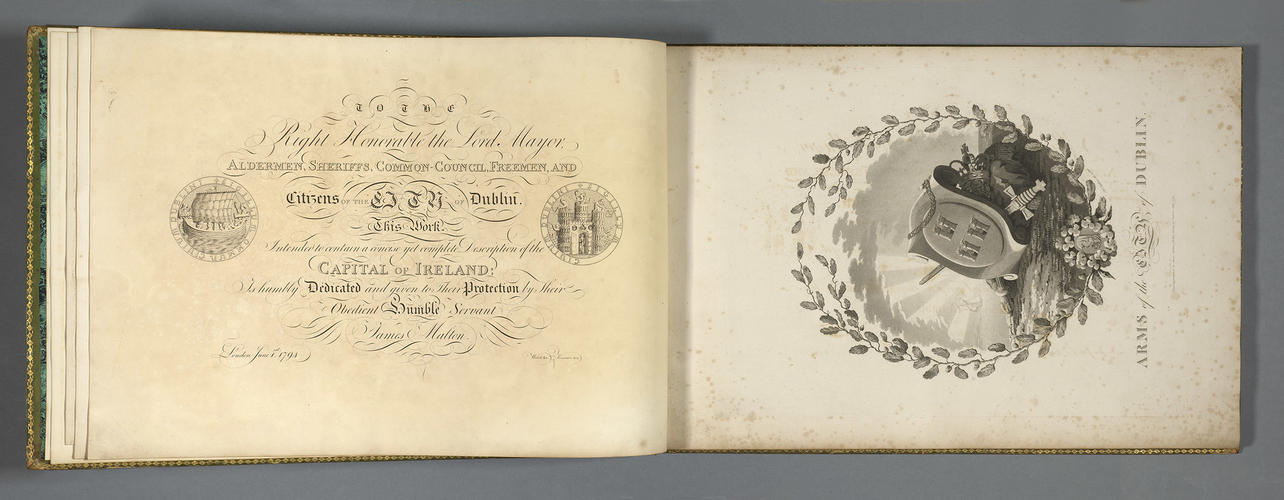 TO THE
Right Honorable the Lord Mayor,
ALDERMEN, SHERIFFS, COMMON-COUNCIL, FREEMEN, AND
Citizens OF THE CITY OF Dublin.
This Work.
Intended to contain a concise yet complete Description of the
CAPITAL OF IRELAND:
Is humbly Dedicated and given to Their Protection by Their
Obedient Humble Servant
James Malton.
London June 1st. 1794
ARMS of the CITY of DUBLIN.